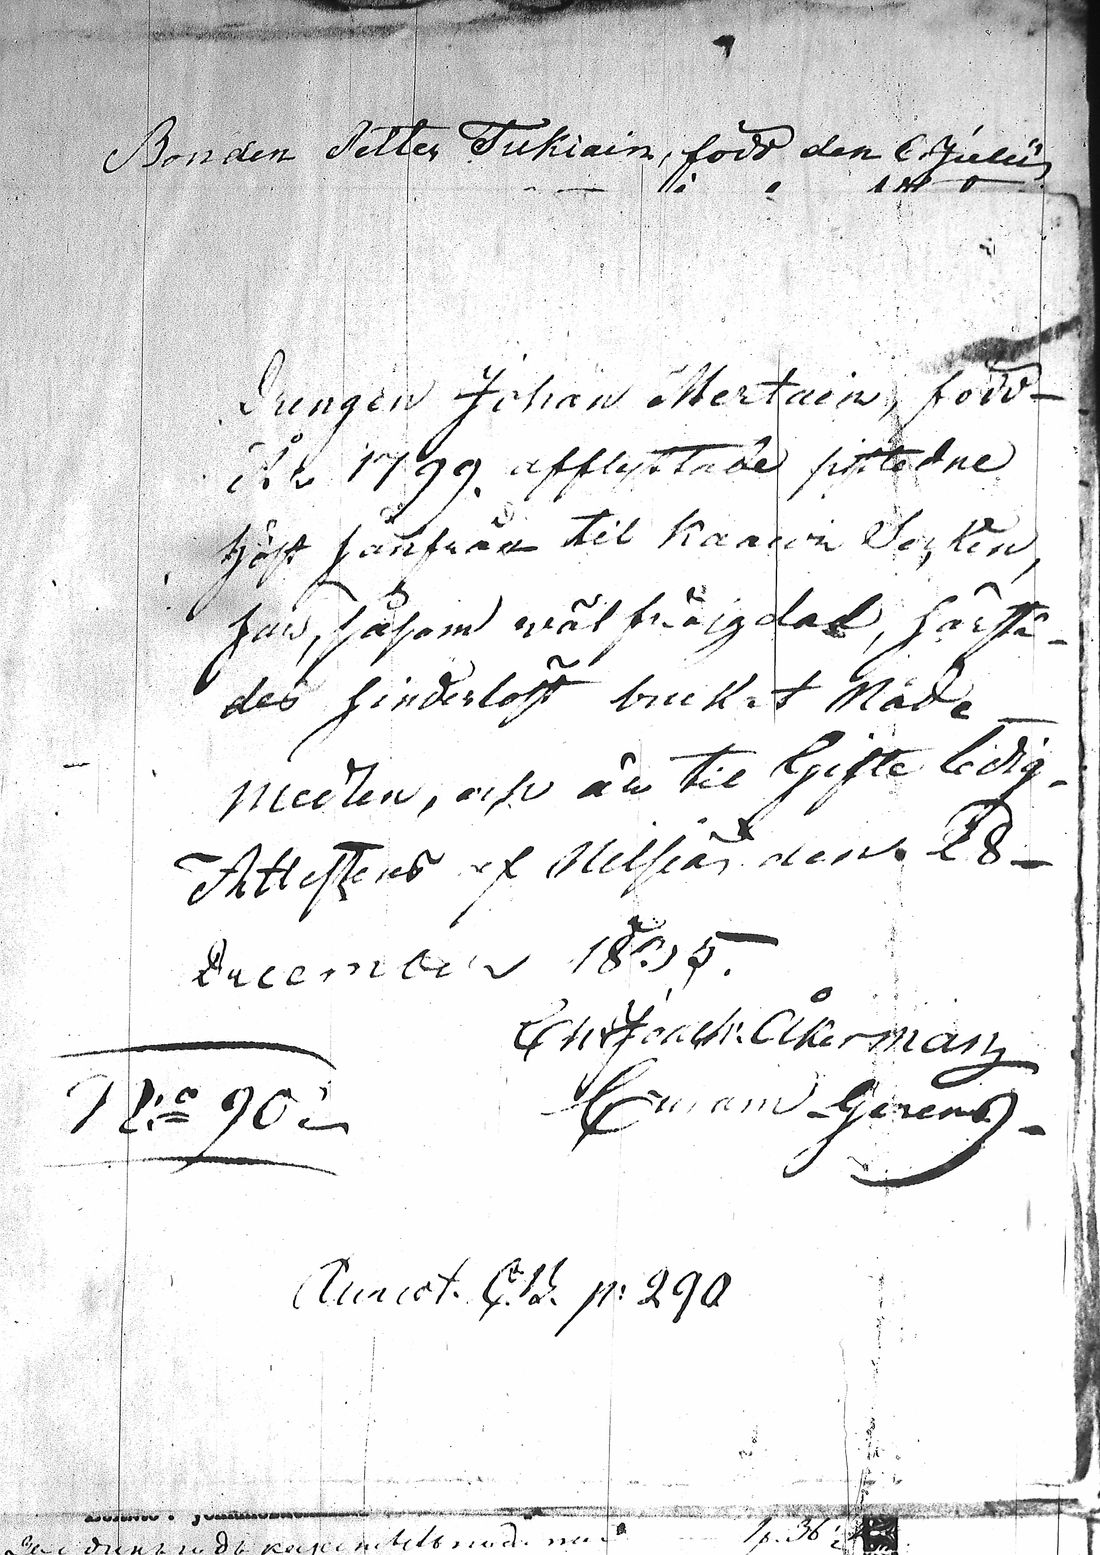 Bonden Petter Tukiain, född den 6 Julii
Drengen Johan Mertain, född
År 1799 afflyttade sistledne
höst härifrån til Kaawi Socken,
har, såsom wälfräigdad, härstä-
des hinderlöst brukat Nåde
medlen, och är til Gifte ledig.
Attesteras af Nilsiä den 28
December 1835.
Åkerman
Curam Gerens
No 90
Annot. C.B. p: 290
p. 36